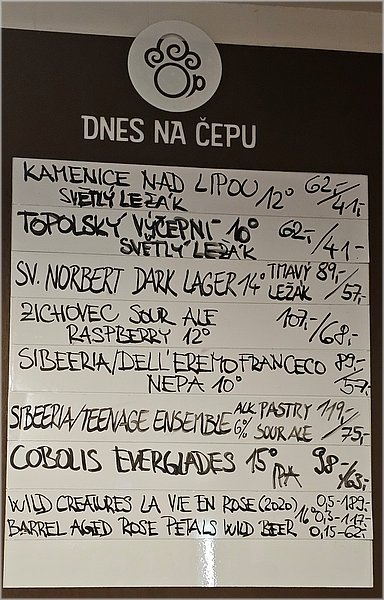 DNES NA ČEPU
KAMENICE NAD LIPOU 12° 62,-/41,-
SVĚTLÝ LEŽÁK
TOPOLSKÝ VÝČEPNÍ 10° 62,-/41,-
SVĚTLÝ LEŽÁK
SV. NORBERT DARK LAGER 14° TMAVÝ LEŽÁK 89,-/57,-
ZICHOVEC SOUR ALE 107,-/68,-
RASPBERRY 12°
SIBEERIA/DELL'EREMO FRANCECO 89,-
NEPA 10° 57,-
SIBEERIA/TEENAGE ENSEMBLE ALK 6% PASTRY SOUR ALE 119,-/75,-
COBOLIS EVERGLADES 15° IPA 98,-/63,-
WILD CREATURES LA VIE EN ROSE (2020) 16° 0,5-189,- 0,3-117,-
BARREL AGED ROSE PETALS WILD BEER 0,15-62,-